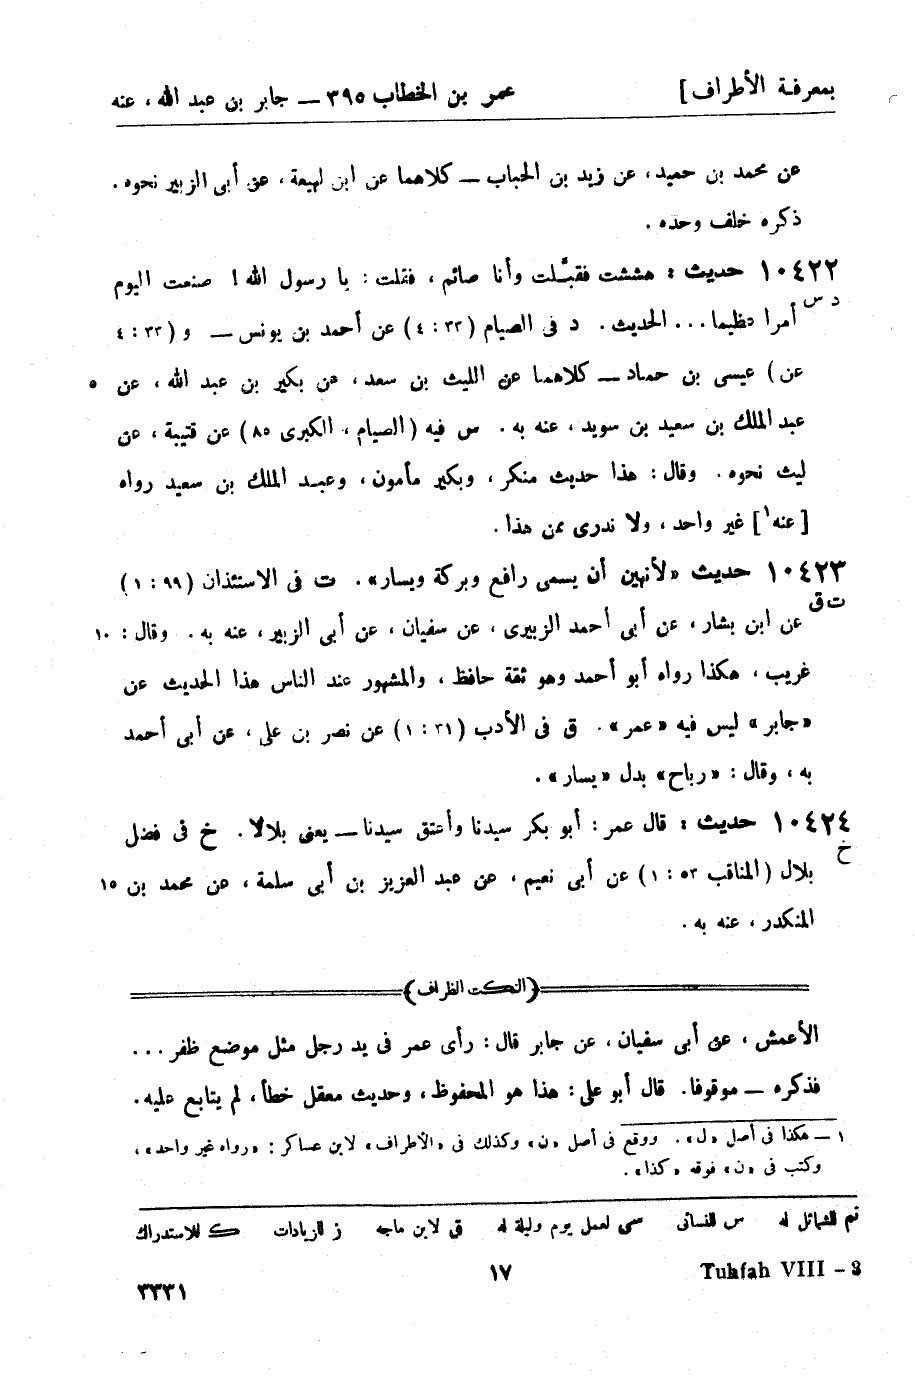 بمعرفة الأطراف] عمر بن الخطاب ٣٩٥ ــ جابر بن عبد الله ، عنه
عن محمد بن حميد ، عن زيد بن الحباب ــ كلاهما عن ابن لهيعة ، عن أبى الزبير نحوه .
ذكره خلف وحده .
١٠٤٢٢ حديث : هششت فقبَّلت وأنا صائم ، فقلت : يا رسول الله ! صنعت اليوم
د س أمرا عظيما ... الحديث . د فى الصيام (٣٣ : ٤) عن أحمد بن يونس ــ و (٣٣ : ٤
عن) عيسى بن حماد ــ كلاهما عن الليث بن سعد ، عن بكير بن عبد الله ، عن ٥
عبد الملك بن سعيد بن سويد ، عنه به . س فيه (الصيام ، الكبرى ٨٥) عن قتيبة ، عن
ليث نحوه . وقال : هذا حديث منكر ، وبكير مأمون ، وعبد الملك بن سعيد رواه
[عنه١] غير واحد ، ولا ندرى ممن هذا .
١٠٤٢٣ حديث «لأنهين أن يسمى رافع وبركة ويسار» . ت فى الاستئذان (٩٩ : ١)
ت ق عن ابن بشار ، عن أبى أحمد الزبيرى ، عن سفيان ، عن أبى الزبير ، عنه به . وقال : ١٠
غريب ، هكذا رواه أبو أحمد وهو ثقة حافظ ، والمشهور عند الناس هذا الحديث عن
«جابر» ليس فيه «عمر» . ق فى الأدب (٣١ : ١) عن نصر بن على ، عن أبى أحمد
به ، وقال : «رباح» بدل «يسار» .
١٠٤٢٤ حديث : قال عمر : أبو بكر سيدنا وأعتق سيدنا ــ يعنى بلالا . خ فى فضل
خ بلال (المناقب ٥٣ : ١) عن أبى نعيم ، عن عبد العزيز بن أبى سلمة ، عن محمد بن ١٥
المنكدر ، عنه به .
(النكت الظراف)
الأعمش ، عن أبى سفيان ، عن جابر قال : رأى عمر فى يد رجل مثل موضع ظفر ...
فذكره ــ موقوفا . قال أبو على : هذا هو المحفوظ ، وحديث معقل خطأ ، لم يتابع عليه .
١ ــ هكذا فى أصل «ل» . ووقع فى أصل «ن» وكذلك فى «الأطراف» لابن عساكر : «رواه غير واحد» ،
وكتب فى «ن» فوقه «كذا» .
تم للشمائل له س للنسائى سى لعمل يوم وليلة له ق لابن ماجه ز للزيادات ك للاستدراك
Tuhfah VIII – 3 ١٧ ٣٣٣١